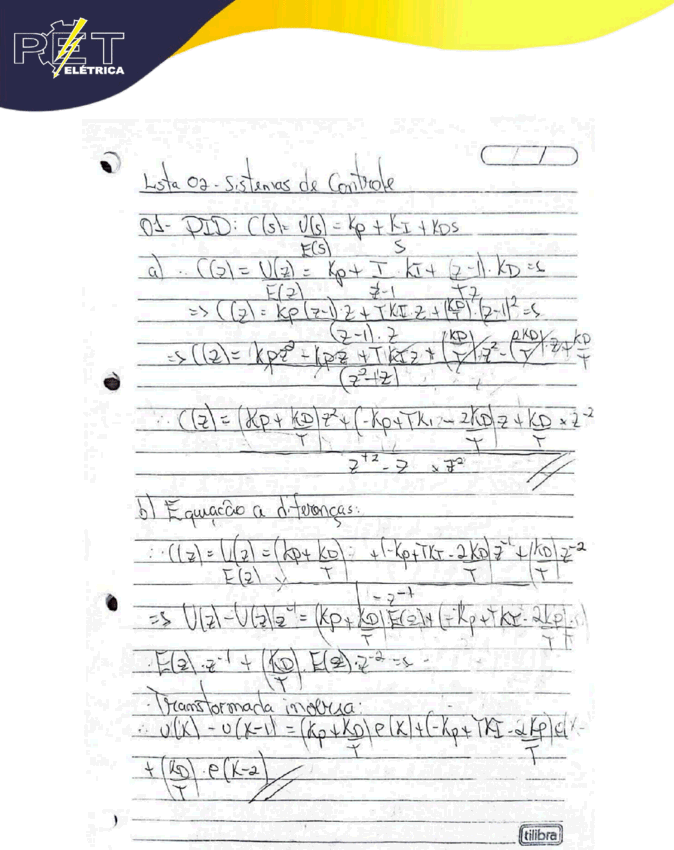 PET
ELÉTRICA
Lista 02 - Sistemas de Controle
01- PID: C(s) = U(s)/E(s) = Kp + KI/S + KDS
a) ∴ C(z) = U(z)/E(z) = Kp + T/(z-1) · KI + (z-1)/Tz · KD =>
=> C(z) = (Kp(z-1)·z + TKI·z + (KD/T)·(z-1)²)/((z-1)·z) =>
=> C(z) = (Kpz² - Kpz + TKIz + (KD/T)·z² - (2KD/T)·z + KD/T)/(z²-1z)
∴ C(z) = ((Kp + KD/T)z² + (-Kp + TKI - 2KD/T)z + KD/T × z⁻²)/(z⁺² - z × z²)
b) Equação a diferenças:
∴ C(z) = U(z)/E(z) = ((Kp + KD/T) + (-Kp + TKI - 2KD/T)z⁻¹ + (KD/T)z⁻²)/(1 - z⁻¹)
=> U(z) - U(z)z⁻¹ = (Kp + KD/T)E(z) + (-Kp + TKI - 2Kp/T)
·E(z)·z⁻¹ + (KD/T)·E(z)·z⁻² =>
·Transformada inversa:
∴ U(K) - U(K-1) = (Kp + KD/T)e(K) + (-Kp + TKI - 2Kp/T)e(K-
+ (KD/T)·e(K-2)
tilibra